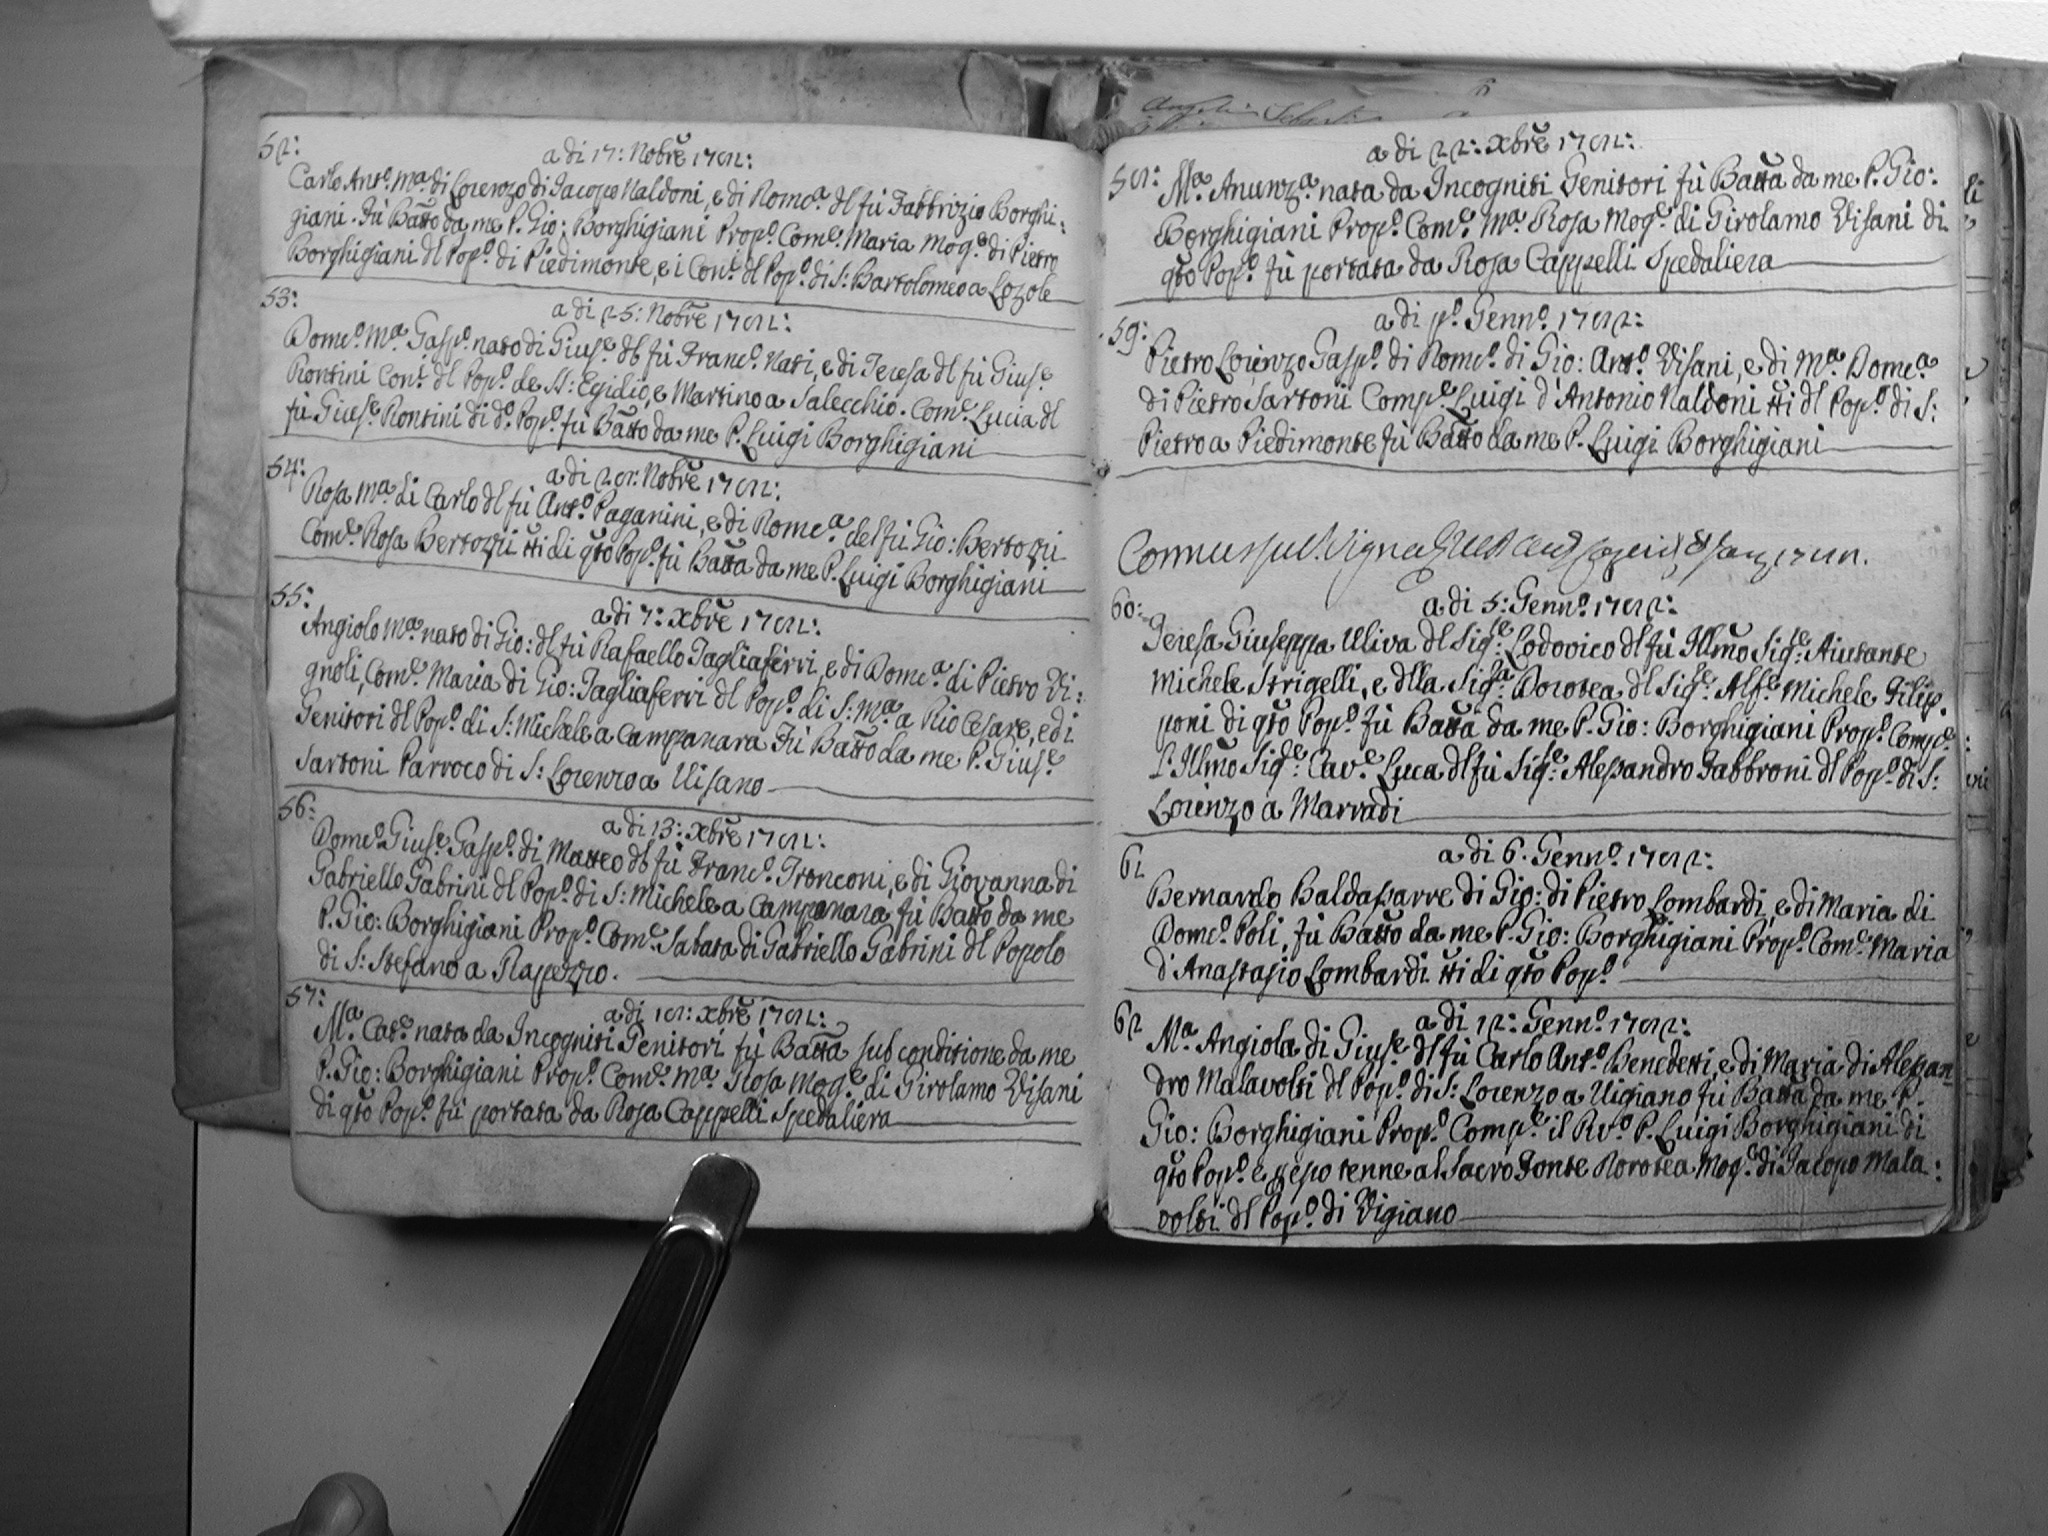 52:
a di 17: Nobre 1781:
Carlo Antº. Mª. di Lorenzo di Jacopo Naldoni, e di Domcª. dl fù Fabbrizio Borghi:
giani. Fù Batto da me P. Gio: Borghigiani Propº. Come. Maria Moge. di Pietro
Borghigiani dl Popº. di Piedimonte, e i Coni. dl Popº. di S: Bartolomeo a Lozole
53:
a di 25: Nobre 1781:
Domcº. Mª. Gaspº. nato di Giuse. dl fù Francº. Nati, e di Teresa dl fù Giuse.
Rontini Coni. dl Popº. de SS: Egidio, e Martino a Salecchio. Come. Lucia dl
fù Giuse. Rontini di dº. Popº. fù Batto da me P. Luigi Borghigiani
54:
a di 28: Nobre 1781:
Rosa Mª. di Carlo dl fù Antº. Paganini, e di Domcª. del fù Gio: Bertozzi
Come. Rosa Bertozzi tti di qto Popº. fù Batta da me P. Luigi Borghigiani
55:
a di 7: Xbre 1781:
Angiolo Mª. nato di Gio: dl fù Rafaello Tagliaferri, e di Domcª. di Pietro Vi:
gnoli, Come. Maria di Gio: Tagliaferri dl Popº. di S: Mª. a Rio Cesare, e di
Genitori dl Popº. di S: Michele a Campanara Fù Batto da me P. Giuse.
Sartoni Parroco di S: Lorenzo a Visano
56:
a di 13: Xbre 1781:
Domcº. Giuse. Gaspº. di Matteo dl fù Francº. Tronconi, e di Giovanna di
Gabriello Gabrini dl Popº. di S: Michele a Campanara fù Batto da me
P. Gio: Borghigiani Propº. Come. Sabata di Gabriello Gabrini dl Popolo
di S: Stefano a Rapezzo.
57:
a di 18: Xbre 1781:
Mª. Cate. nata da Incogniti Genitori fù Batta sub conditione da me
P. Gio: Borghigiani Propº. Come. Mª. Rosa Moge. di Girolamo Visani
di qto Popº. fù portata da Rosa Cappelli Spedaliera
a di 22: Xbre 1781:
58: Mª. Anunzª. nata da Incogniti Genitori fù Batta da me P. Gio:
Borghigiani Propº. Come. Mª. Rosa Moge. di Girolamo Visani di
qto Popº. fù portata da Rosa Cappelli Spedaliera
a di pº. Gennº. 1782:
59:
Pietro Lorenzo Gaspº. di Domcº. di Gio: Antº. Visani, e di Mª. Domcª.
di Pietro Sartoni Compe. Luigi d'Antonio Naldoni tti dl Popº. di S:
Pietro a Piedimonte fù Batto da me P. Luigi Borghigiani
60:
a di 5: Gennº. 1782:
Teresa Giuseppa Uliva dl Sige. Lodovico dl fù Illmo Sige: Aiutante
Michele Strigelli, e dlla Sigª. Dorotea dl Sige. Alfe. Michele Filip:
poni di qto Popº. fù Batta da me P. Gio: Borghigiani Propº. Compe.
L'Illmo Sige: Cave. Luca dl fù Sige: Alessandro Fabbroni dl Popº. di S:
Lorenzo a Marradi
a di 6. Gennº. 1782:
61
Bernardo Baldassarre di Gio: di Pietro Lombardi, e di Maria di
Domcº. Poli, fù Batto da me P. Gio: Borghigiani Propº. Come. Maria
d'Anastasio Lombardi tti di qto Popº.
a di 12: Gennº. 1782:
62 Mª. Angiola di Giuse. dl fù Carlo Antº. Benedetti, e di Maria di Alessan
dro Malavolti dl Popº. di S: Lorenzo a Vigiano fù Batta da me P.
Gio: Borghigiani Propº. Compe. il Rvº. P. Luigi Borghigiani di
qto Popº. e per esso tenne al Sacro Fonte Dorotea Moge. di Jacopo Mala:
volti dl Popº. di Vigiano